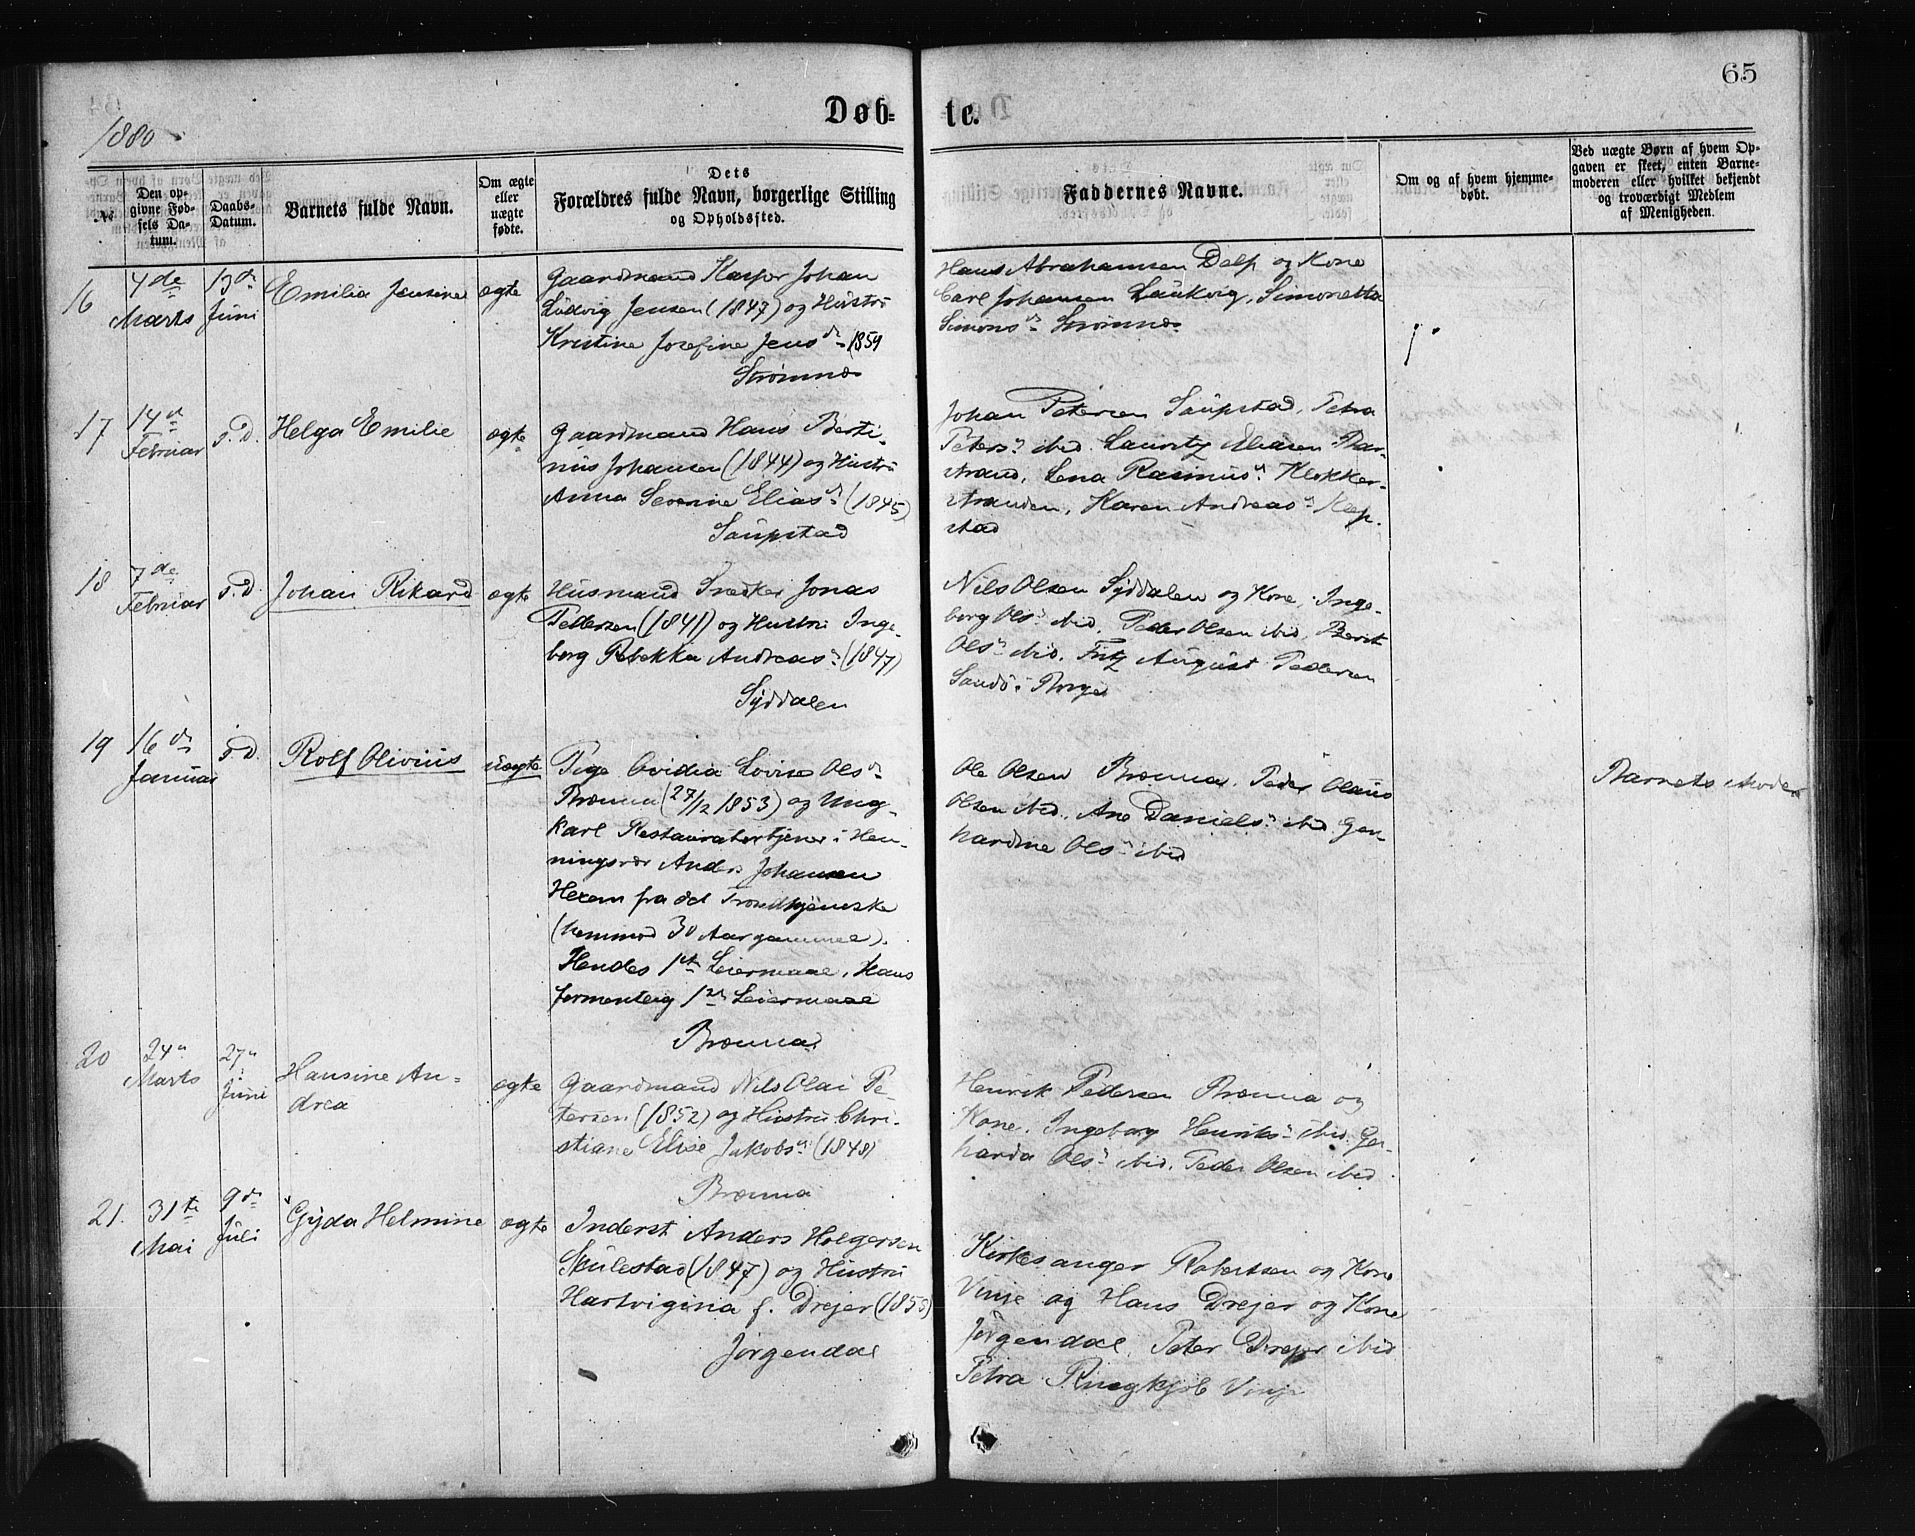 65
Døb-
te.
1880
№
Den op-
givne Fød-
sels Da-
tum.
Daabs-
Datum.
Barnets fulde Navn.
Om ægte
eller
uægte
fødte.
Dets
Forældres fulde Navn, borgerlige Stilling
og Opholdssted.
Faddernes Navne.
Om og af hvem hjemme-
døbt.
Ved uægte Børn af hvem Op-
gaven er skeet, enten Barne-
moderen eller hvilket bekjendt
og troværdigt Medlem
af Menigheden.
16
4de
Marts
13de
Juni
Emilia Jensine
ægte
Gaardmand Kasper Johan
Ludvig Jensen (1847) og Hustru
Kristine Josefine Jensdr 1859
Strømnes
Hans Abrahamsen Delp og Kone
Carl Johansen Laukvig, Simonetta
Simonsdr Strømnes
17
14d
Februar
s. D.
Helga Emilie
ægte
Gaardmand Hans Berti-
nus Johansen (1844) og Hustru
Anna Severine Eliasdr (1845)
Saupstad
Johan Petersen Saupstad, Petra
Petersdr ibid. Lauritz Eliasen Bar-
strand, Lena Rasmusdr Klokker-
stranden, Karen Andreasdr Kep-
stad
18
7de
Februar
s. D.
Johan Rikard
ægte
Husmand Snedker Jonas
Pedersen (1841) og Hustru Inge-
borg Rebekka Andreasdr (1847)
Syddalen
Nils Olsen Syddalen og Kone, Inge-
borg Olsdr ibid, Peder Olsen ibid, Berit
Olsdr ibid. Fritz August Pedersen
Sandø i Borge
19
16de
Januar
s. D.
Rolf Olivius
uægte
Pige Ovidia Lovise Olsdr
Brenna (27/12 1853) og Ung-
karl Restauratørtjener i Hen-
ningsvær Anders Johansen
Hexem fra det Trondhjemske
(henimod 30 Aar gammel).
Hendes 1ste Leiermaal, Hans
formentlig 1ste Leiermaal
Brenna
Ole Olsen Brenna, Peder Olaus
Olsen ibid, Ane Danielsdr ibid Ger-
hardine Olsdr ibid
Barnets Moder
20
24de
Marts
27de
Juni
Hansine An-
drea
ægte
Gaardmand Nils Olai Pe-
tersen (1852) og Hustru Chri-
stiane Elise Jakobsdr (1848)
Brenna
Henrik Pettersen Brenna og
Kone, Ingeborg Henriksdr ibid. Ger-
harda Olsdr ibid, Peder Olsen ibid
21.
31te
Mai
9de
Juli
Gyda Helmine
ægte
Inderst Anders Holgersen
Skulestad (1847) og Hustru
Hartvigina f. Drejer (1855)
Jørgendal
Kirkesanger Robertsen og Kone
Vinje og Hans Drejer og Kone
Jørgendal, Peter Drejer ibid
Petra Ringkjøb Vinje